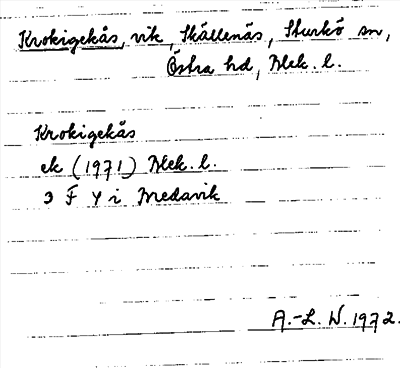 Krokigekås, vik, Skällenäs, Sturkö sn,
Östra hd, Blek. l.
Krokigekås
ek (1971) Blek. l.
3 F Y i Bredavik
A.-L. W. 1972.